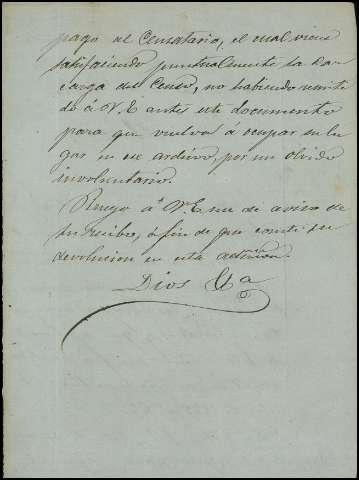 pago al Censatario, el cual viene
satisfaciendo puntualmente la
carga del Censo, no habiendo remiti
do á V.E. antes este documento
para que vuelva á ocupar su lu
gar en ese archivo, por un olvido
involuntario.
Ruego á V.E. me de aviso de
su recibo, a fin de que conste su
devolucion en esta
Dios &a